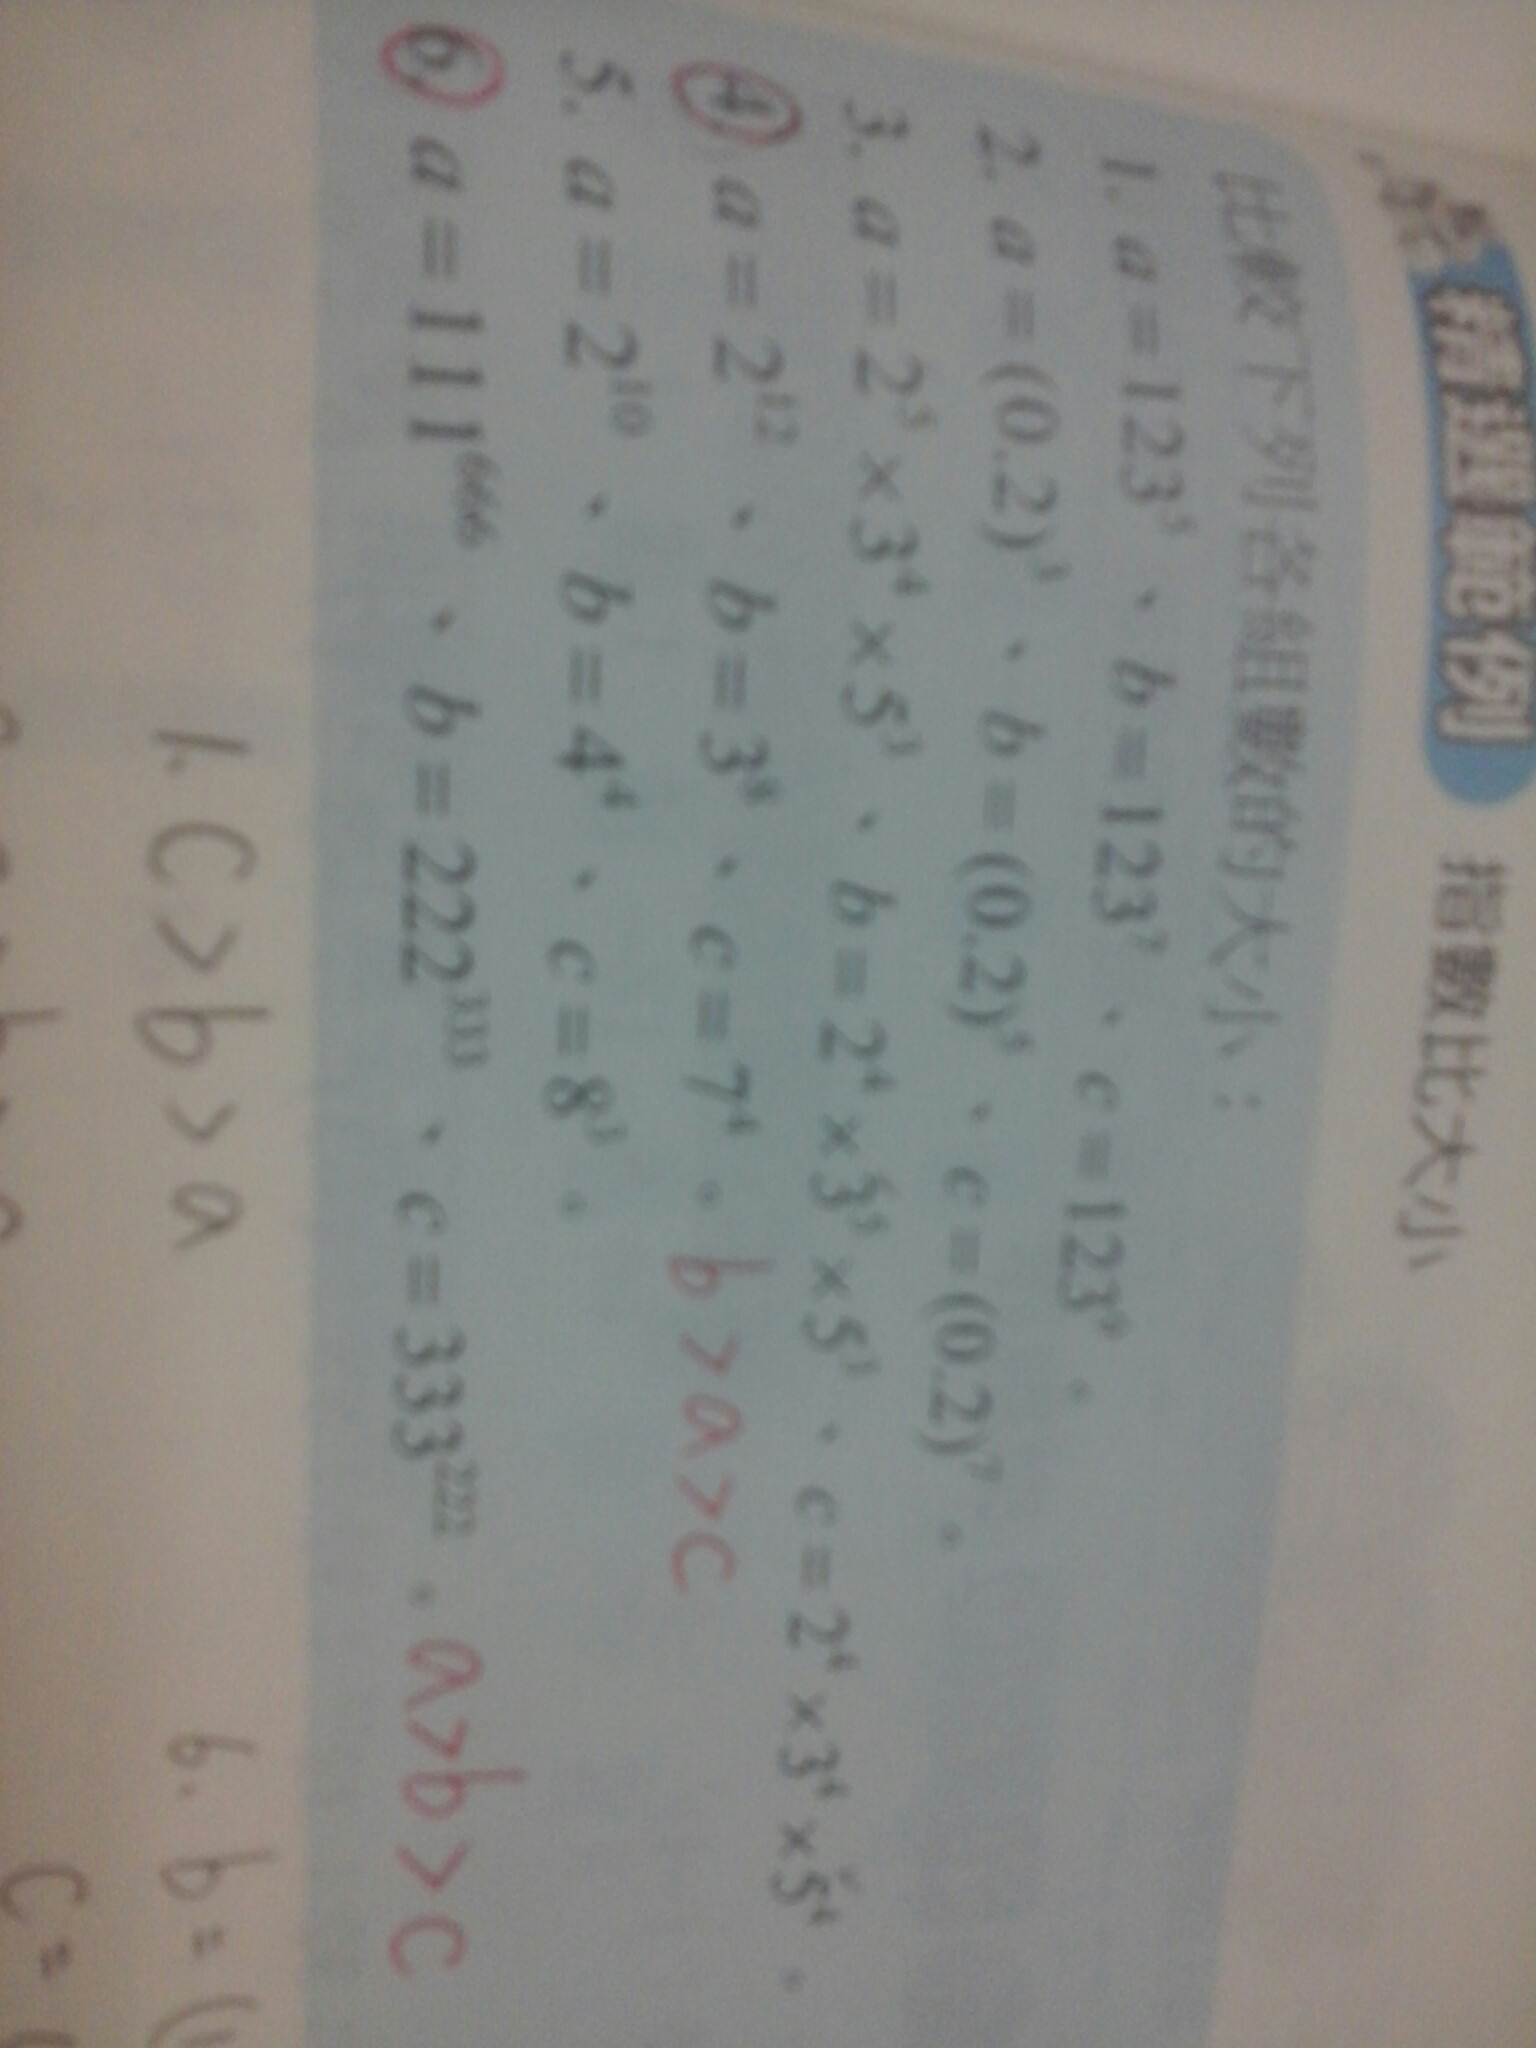 精選範例 指數比大小
比較下列各組數的大小：
1. a=123⁵、b=123⁷、c=123⁹。
2. a=(0.2)³、b=(0.2)⁵、c=(0.2)⁷。
3. a=2⁵×3⁴×5³、b=2⁴×3⁵×5³、c=2⁴×3⁴×5⁴。
4. a=2¹²、b=3⁸、c=7⁴。b>a>c
5. a=2¹⁰、b=4⁴、c=8³。
6. a=111⁶⁶⁶、b=222³³³、c=333²²²。a>b>c
1. c>b>a
6. b=(
c=